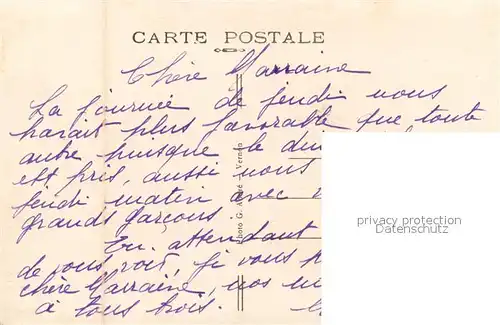 CARTE POSTALE
Chère Marraine
La journée de jeudi nous
parait plus favorable que toute
autre puisque le
est pris, aussi nous
jeudi matin avec
grands garçons.
En attendant
de vous voir, je vous
chère Marraine, nos
à tous trois.
Photo G. — Vernon
privacy protection
Datenschutz